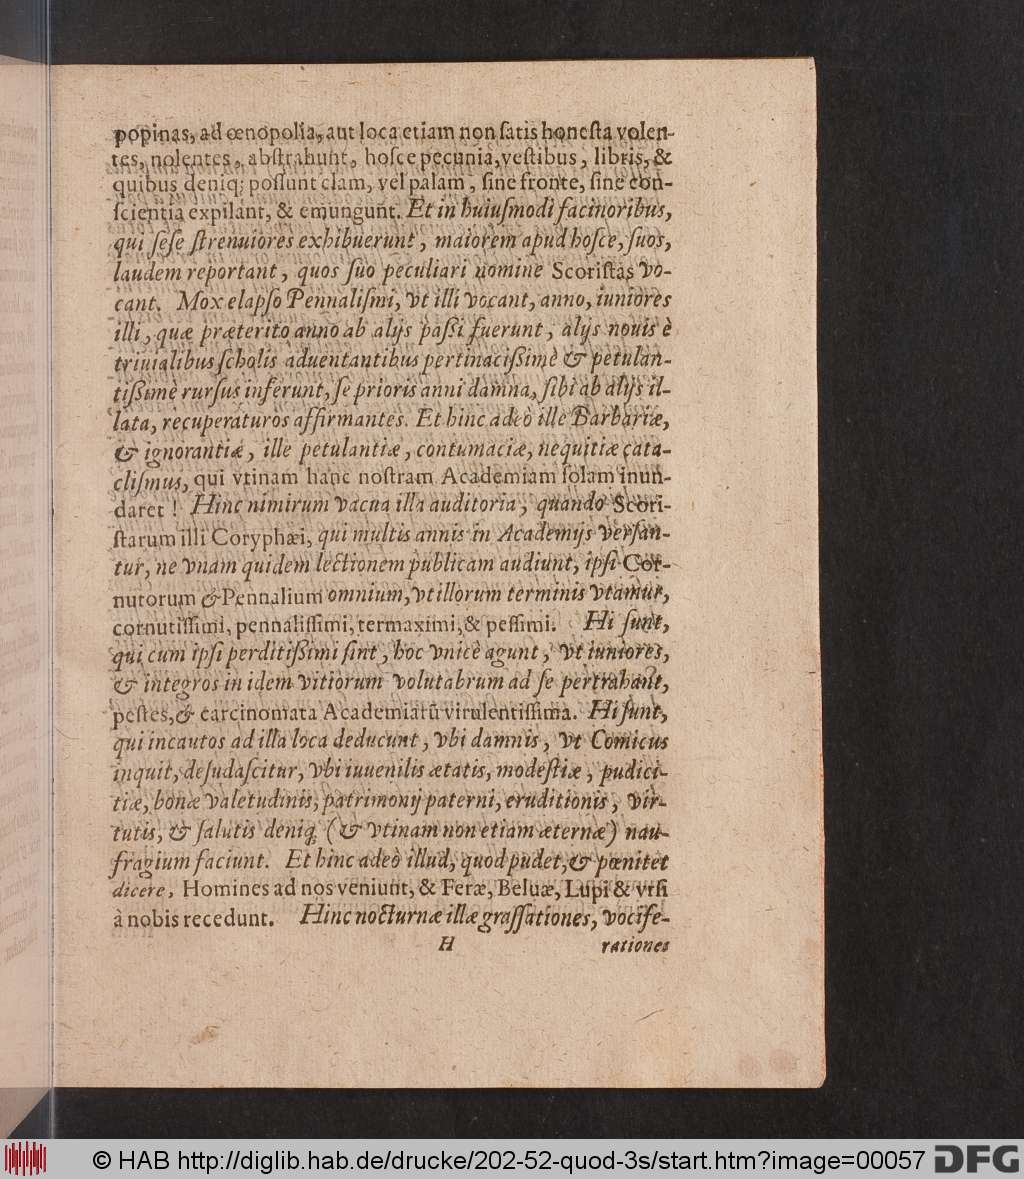 popinas, ad œnopolia, aut loca etiam non ſatis honeſta volen-
tes, nolentes, abſtrahunt, hoſce pecuniâ, veſtibus, libris, &
quibus deniq; poſſunt clam, vel palam, ſine fronte, ſine con-
ſcientia expilant, & emungunt. Et in huiuſmodi facinoribus,
qui ſeſe ſtrenuiores exhibuerunt, maiorem apud hoſce, ſuos,
laudem reportant, quos ſuo peculiari nomine Scoriſtas vo-
cant. Mox elapſo Pennaliſmi, vt illi vocant, anno, iuniores
illi, quæ præterito anno ab alijs paſſi fuerunt, alijs nouis è
triuialibus ſcholis aduentantibus pertinaciſſimè & petulan-
tiſſimè rurſus inferunt, ſe prioris anni damna, ſibi ab alijs il-
lata, recuperaturos affirmantes. Et hinc adeò ille Barbariæ,
& ignorantiæ, ille petulantiæ, contumaciæ, nequitiæ cata-
cliſmus, qui vtinam hanc noſtram Academiam ſolam inun-
daret! Hinc nimirum vacua illa auditoria, quando Scori-
ſtarum illi Coryphæi, qui multis annis in Academijs verſan-
tur, ne vnam quidem lectionem publicam audiunt, ipſi Cor-
nutorum & Pennalium omnium, vt illorum terminis vtamur,
cornutiſſimi, pennaliſſimi, termaximi, & peſſimi. Hi ſunt,
qui cum ipſi perditiſſimi ſint, hoc vnicè agunt, vt iuniores,
& integros in idem vitiorum volutabrum ad ſe pertrahant,
peſtes, & carcinomata Academiarū virulentiſſima. Hi ſunt,
qui incautos ad illa loca deducunt, vbi damnis, vt Comicus
inquit, deſudaſcitur, vbi iuuenilis ætatis, modeſtiæ, pudici-
tiæ, bonæ valetudinis, patrimonij paterni, eruditionis, vir-
tutis, & ſalutis deniq; (& vtinam non etiam æternæ) nau-
fragium faciunt. Et hinc adeò illud, quod pudet, & pœnitet
dicere, Homines ad nos veniunt, & Feræ, Beluæ, Lupi & vrſi
à nobis recedunt. Hinc nocturnæ illæ graſſationes, vocife-
H rationes
© HAB http://diglib.hab.de/drucke/202-52-quod-3s/start.htm?image=00057 DFG